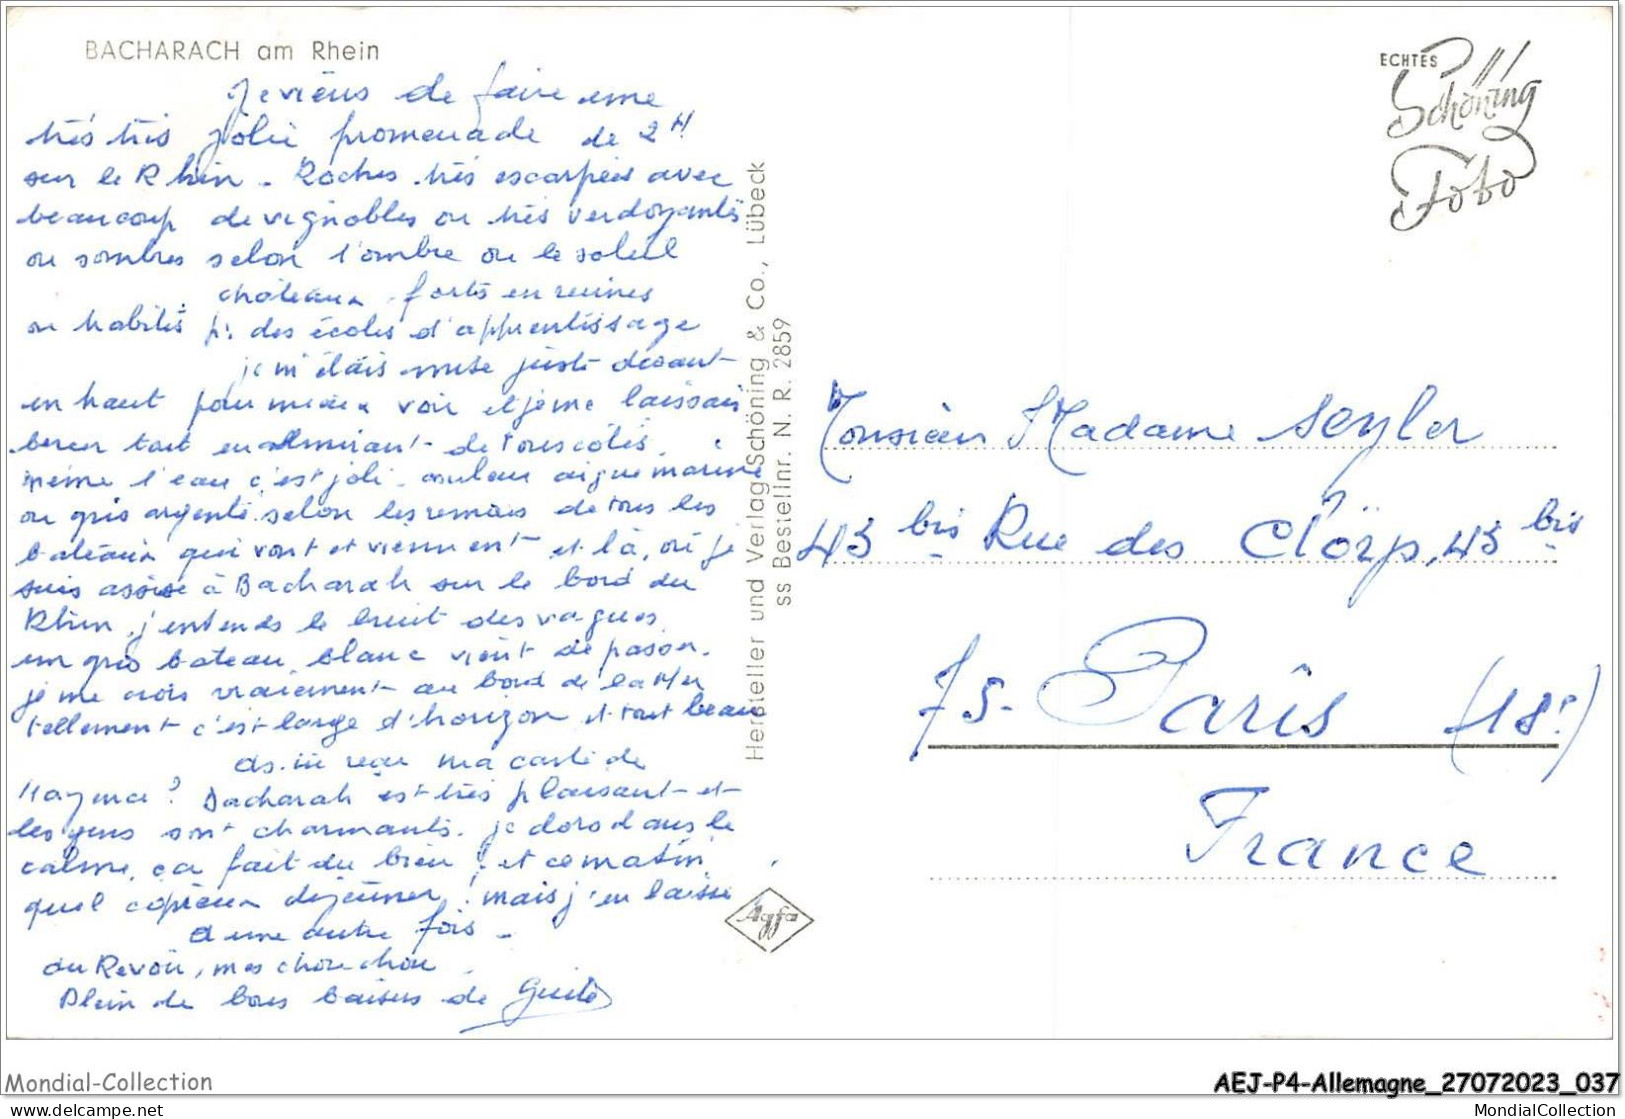 BACHARACH am Rhein
Je viens de faire une
très très jolie promenade de 2H
sur le Rhin - Roches très escarpées avec
beaucoup de vignobles ou très verdoyants
ou sombres selon l'ombre ou le soleil
châteaux forts en ruines
ou habités pr. des écoles d'apprentissage
je m'étais mise juste devant
en haut pour mieux voir et je me laissais
bercer tout en admirant de tous côtés.
même l'eau c'est joli - couleur aigue marine
ou gris argenté selon les remous de tous les
bateaux qui vont et viennent et là, où je
suis assise à Bacharah sur le bord du
Rhin, j'entends le bruit des vagues
un gros bateau blanc vient de passer.
je me crois vraiment au bord de la Mer
tellement c'est large d'horizon et tout beau
as-tu reçu ma carte de
Mayence? Bacharah est très plaisant et
les gens sont charmants. je dors dans le
calme, ça fait du bien! et ce matin
quel copieux déjeuner! mais j'en laisse
d'une autre fois -
au Revoir, mes chou-chou
Plein de bons baisers de Guite
Hersteller und Verlag Schöning & Co., Lübeck
ss Bestellnr. N. R. 2859
Agfa
ECHTES
Schöning
Foto
Monsieur Madame Seyler
43 bis Rue des Cloÿs, 43 bis
75 - Paris (18e)
France
Mondial-Collection
AEJ-P4-Allemagne_27072023_037
delcampe.net
MondialCollection